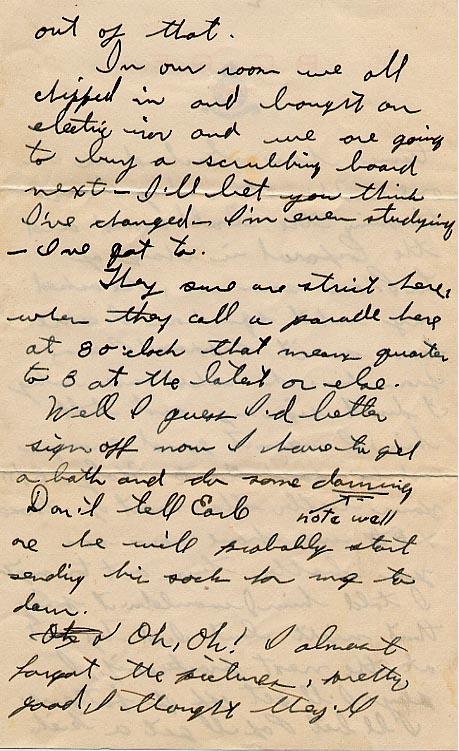 out of that.
In our room we all
chipped in and bought an
electric iron and we are going
to buy a scrubbing board
next - I'll bet you think
I've changed - I'm even studying
- I've got to.
They sure are strict here,
when they call a parade here
at 8 o'clock that means quarter
to 8 at the latest or else.
Well I guess I'd better
sign off now I have to get
a bath and do some darning
note well
Don't tell Earle
or he will probably start
sending his socks for me to
darn.
Oh, Oh! I almost
forgot the pictures, pretty
good I thought they'll